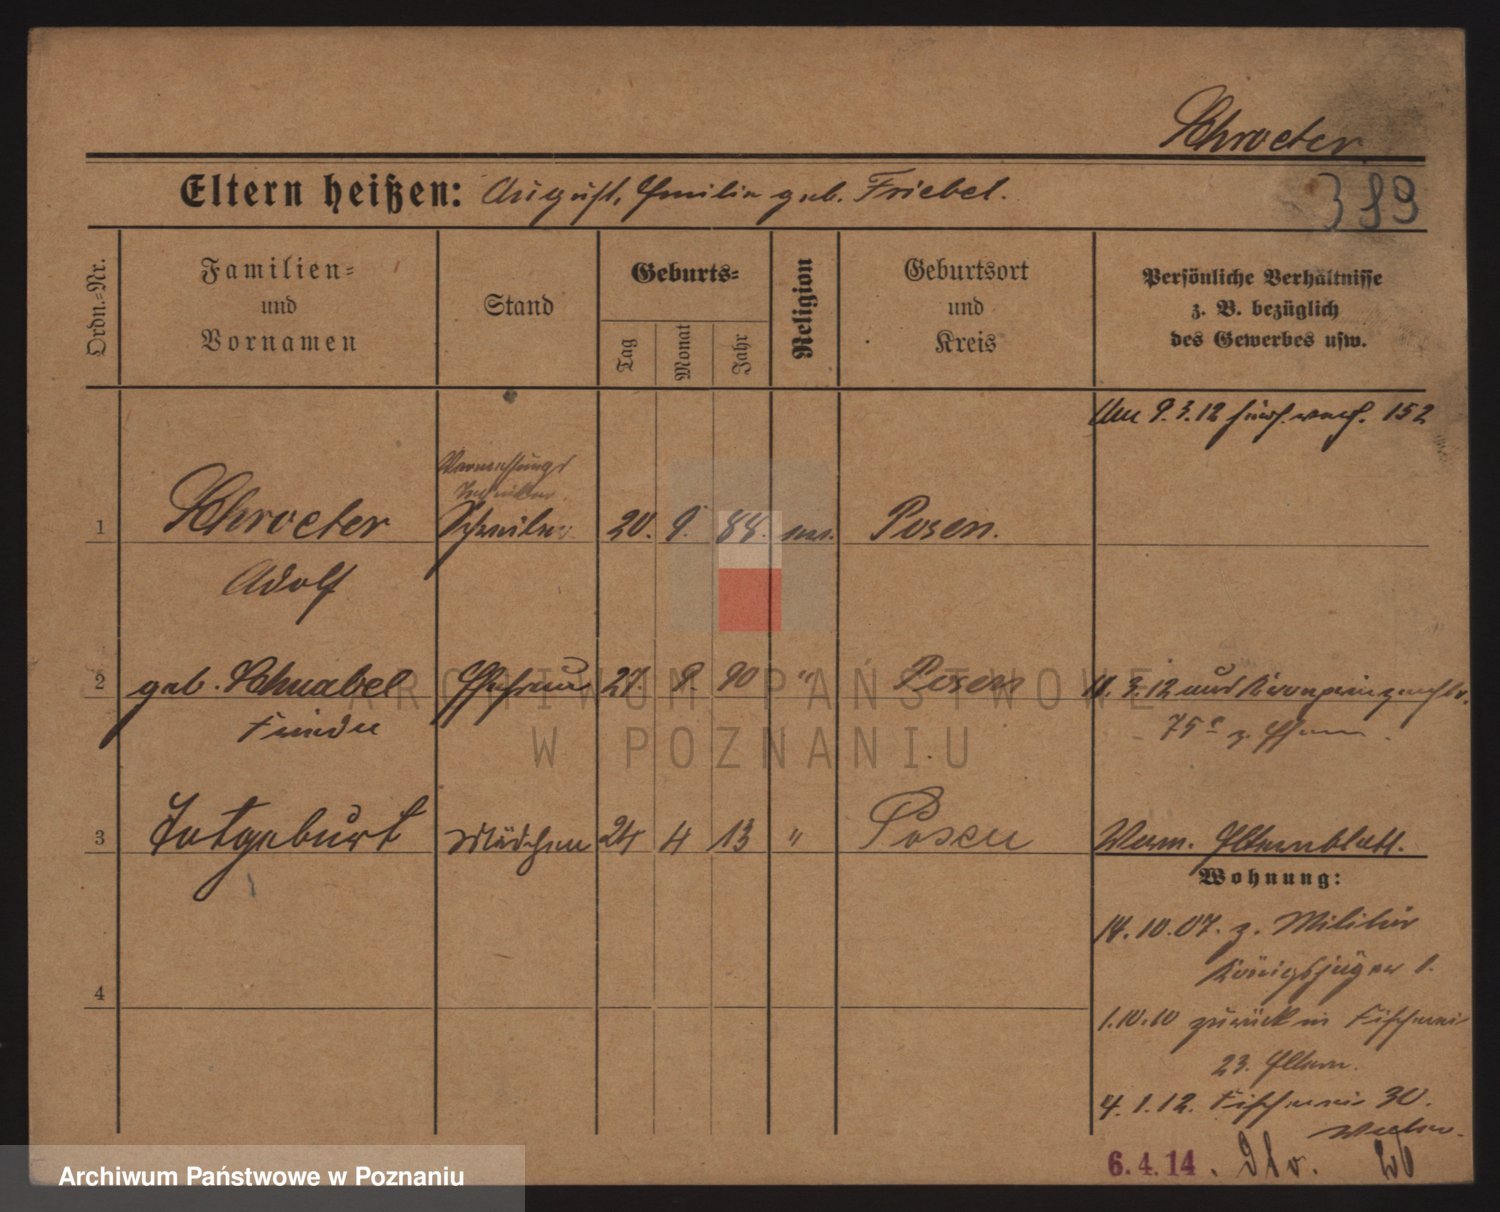 Schroeter
Eltern heißen: August, Emilie geb. Friebel.
389
Ordn.=Nr.
Familien=
und
Vornamen
Stand
Geburts=
Tag
Monat
Jahr
Religion
Geburtsort
und
Kreis
Persönliche Verhältnisse
z. B. bezüglich
des Gewerbes usw.
Am 9.3.12 152
Vermessungs
Techniker
1 Schroeter Schreiber 20. 9. 88. Posen.
Adolf
2 geb. Schnabel Ehefrau 27. 9. 90 " Posen
Frieda
11. 3. 12 aus Kronprinzenstr.
75 z. Ehem.
3 Totgeburt Mädchen 24 4 13 " Posen
Verm. Elternblatt.
Wohnung:
14.10.07. z. Militär
Königsjäger 1.
4
1.10.10 zurück in Fischerei
23. Eltern.
4.1.12. Fischerei 30.
6.4.14.
ARCHIWUM PAŃSTWOWE
W POZNANIU
Archiwum Państwowe w Poznaniu